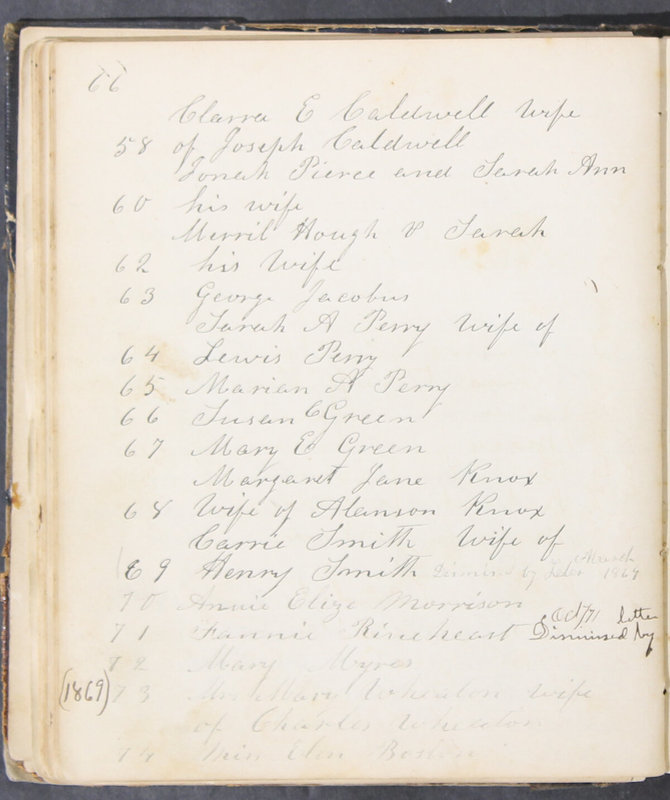 66
Clarra E Caldwell Wife
58 of Joseph Caldwell
Jonah Pierce and Sarah Ann
60 his wife
Merril Hough & Sarah
62 his Wife
63 George Jacobus
Sarah A Perry Wife of
64 Lewis Perry
65 Marian A Perry
66 Susan C Green
67 Mary E Green
Margaret Jane Knox
68 Wife of Alanson Knox
Carrie Smith Wife of
69 Henry Smith Dismissed by Letter March 1869
70 Annie Eliza Morrison
71 Fannie Rineheart Dismissed by letter Oct/71
72 Mary Myres
(1869) 73 Mrs Mary Wheaton wife
of Charles Wheaton
74 Miss Elen Boston